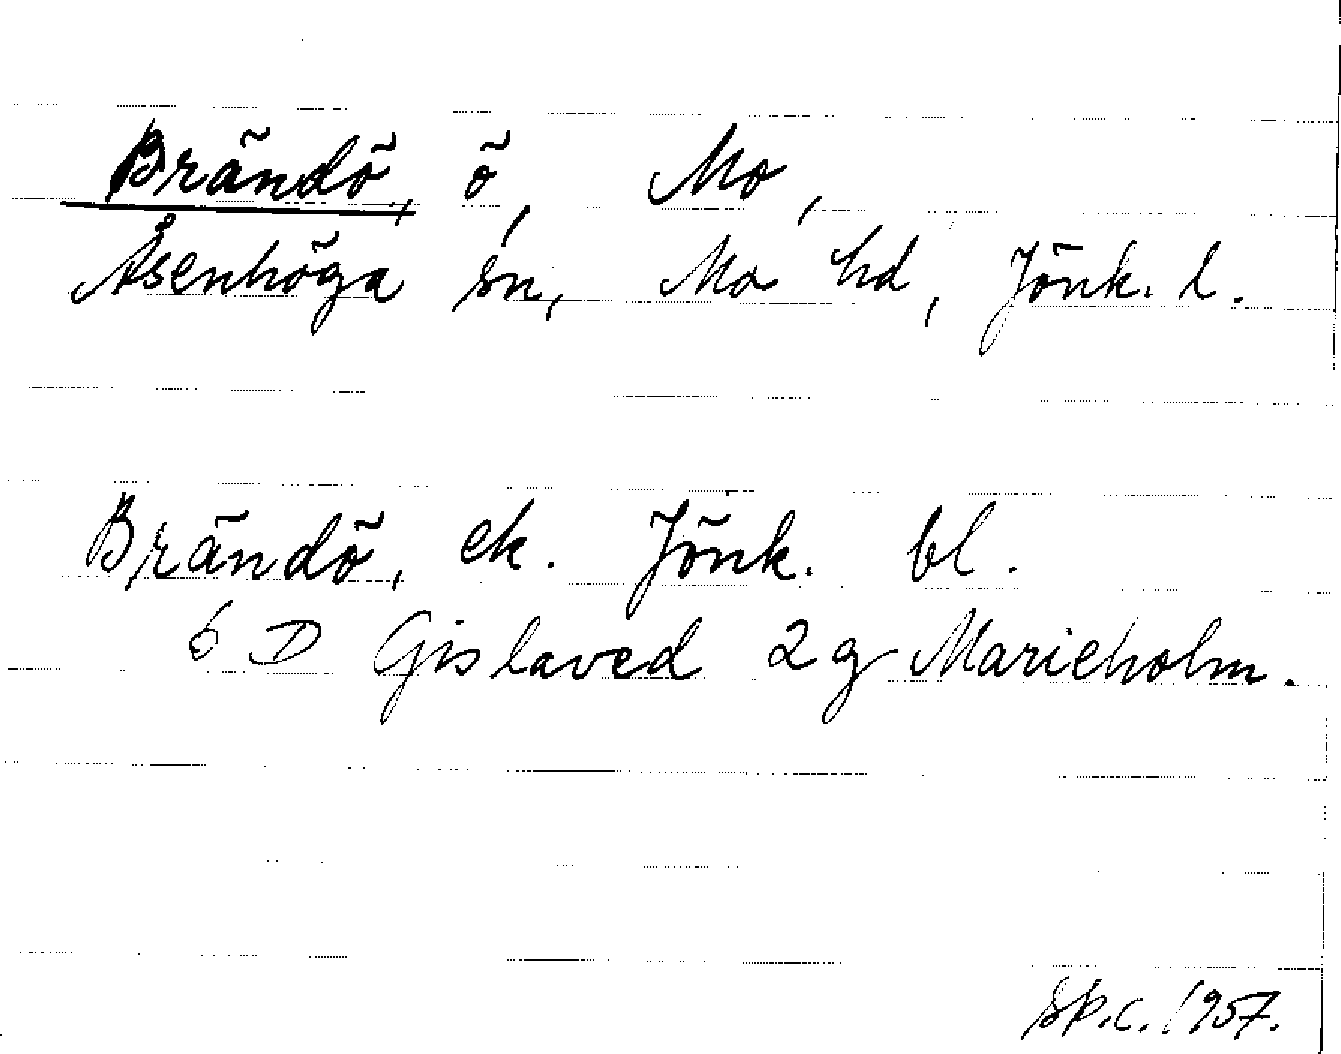 Brändö, ö, Mo,
Åsenhöga sn, Mo hd, Jönk. l.
Brändö, ek. Jönk. bl.
6 D Gislaved 2g Marieholm.
Sp.c. 1957.